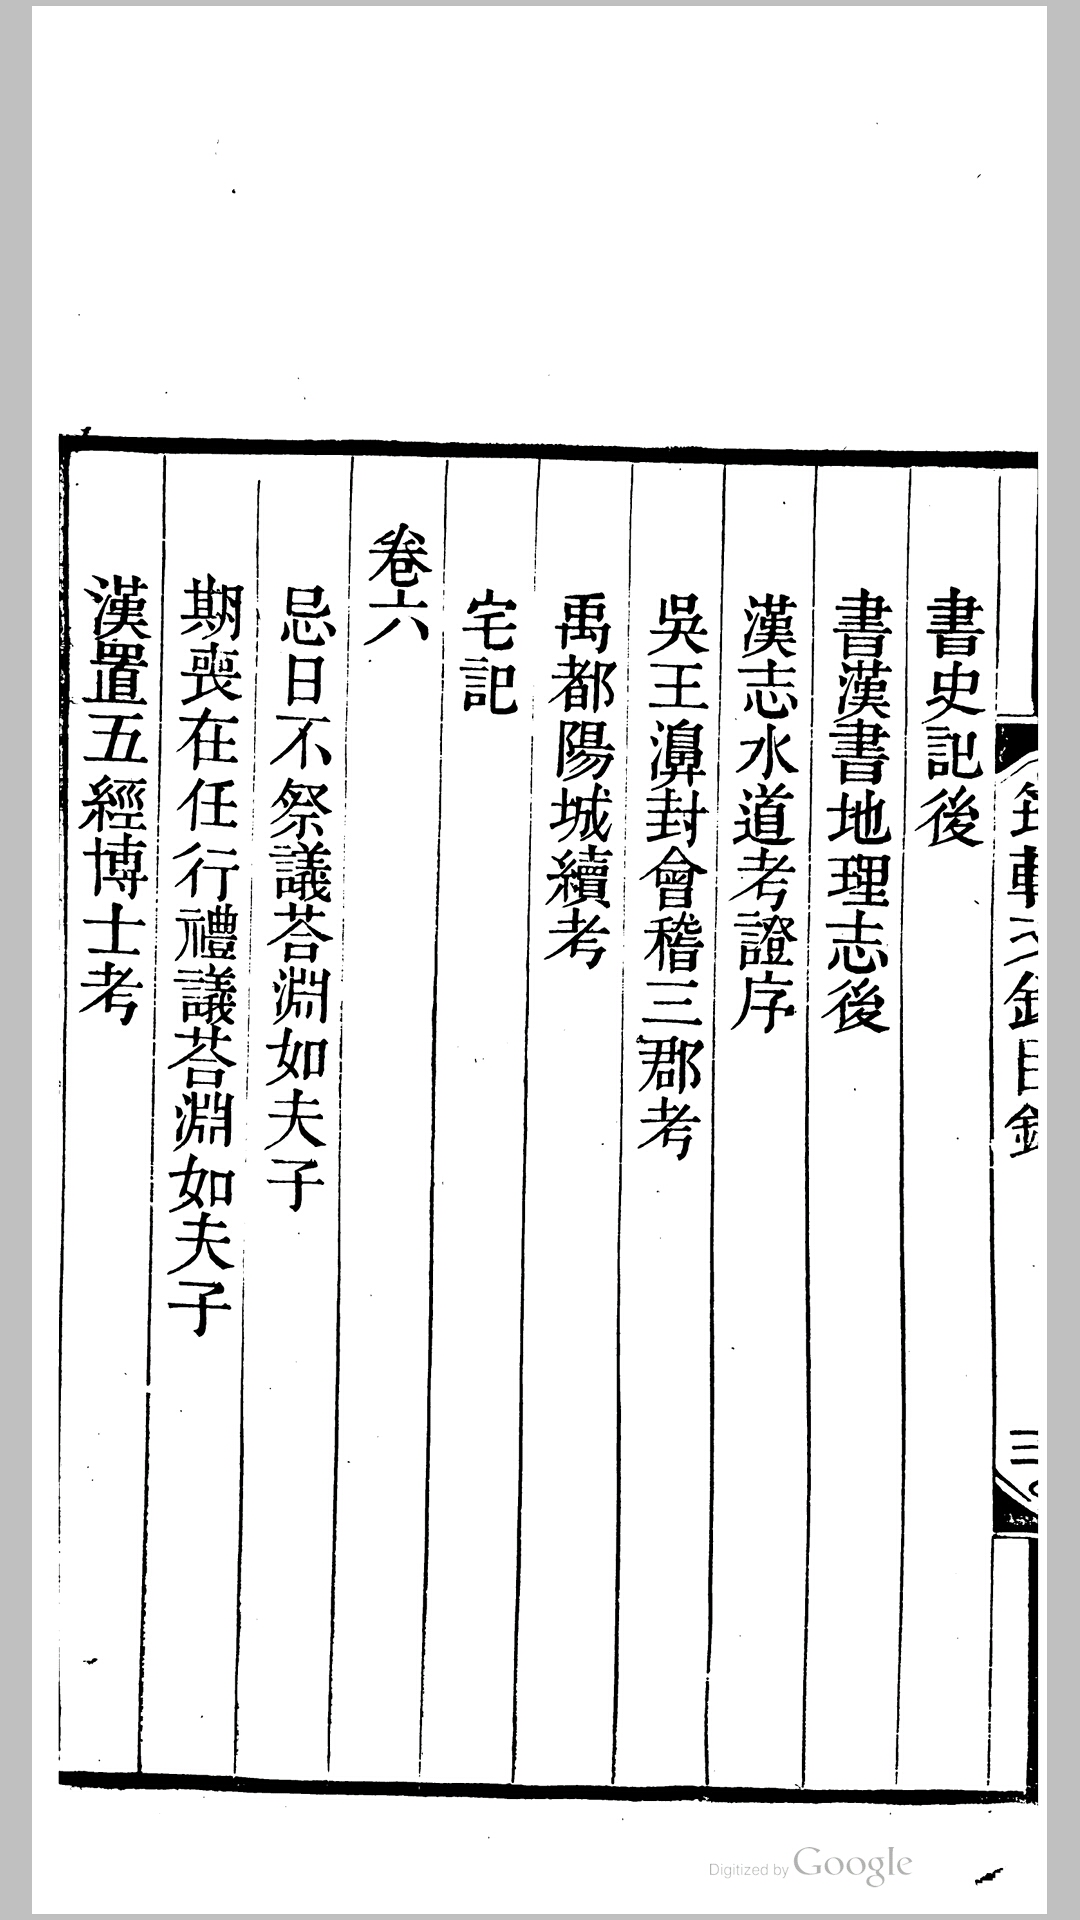 書史記後
書漢書地理志後
漢志水道考證序
吳王濞封會稽三郡考
禹都陽城續考
宅記
卷六
忌日不祭議荅淵如夫子
期喪在任行禮議荅淵如夫子
漢置五經博士考
三
Digitized by Google